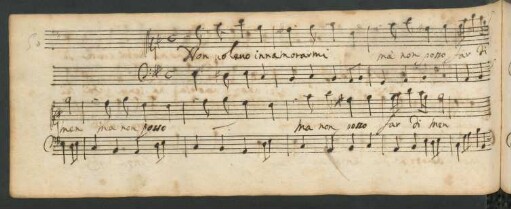 Non volevo innamorarmi ma non posso far di
men ma non posso ma non posso far di men